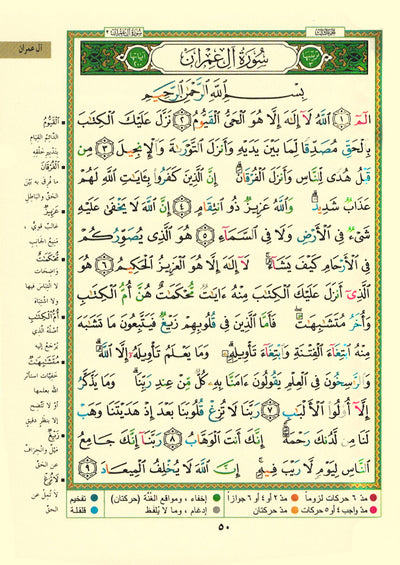 الجزء الثالث
سورة آل عمران ٣
آل عمران
سُورَةُ آلِ عِمْرَانَ
بِسْمِ اللَّهِ الرَّحْمَٰنِ الرَّحِيمِ
الٓمٓ ١ ٱللَّهُ لَآ إِلَٰهَ إِلَّا هُوَ ٱلْحَىُّ ٱلْقَيُّومُ ٢ نَزَّلَ عَلَيْكَ ٱلْكِتَٰبَ
بِٱلْحَقِّ مُصَدِّقًا لِّمَا بَيْنَ يَدَيْهِ وَأَنزَلَ ٱلتَّوْرَىٰةَ وَٱلْإِنجِيلَ ٣ مِن
قَبْلُ هُدًى لِّلنَّاسِ وَأَنزَلَ ٱلْفُرْقَانَ ۗ إِنَّ ٱلَّذِينَ كَفَرُوا۟ بِـَٔايَٰتِ ٱللَّهِ لَهُمْ
عَذَابٌ شَدِيدٌ ۗ وَٱللَّهُ عَزِيزٌ ذُو ٱنتِقَامٍ ٤ إِنَّ ٱللَّهَ لَا يَخْفَىٰ عَلَيْهِ
شَىْءٌ فِى ٱلْأَرْضِ وَلَا فِى ٱلسَّمَآءِ ٥ هُوَ ٱلَّذِى يُصَوِّرُكُمْ
فِى ٱلْأَرْحَامِ كَيْفَ يَشَآءُ ۚ لَآ إِلَٰهَ إِلَّا هُوَ ٱلْعَزِيزُ ٱلْحَكِيمُ ٦ هُوَ
ٱلَّذِىٓ أَنزَلَ عَلَيْكَ ٱلْكِتَٰبَ مِنْهُ ءَايَٰتٌ مُّحْكَمَٰتٌ هُنَّ أُمُّ ٱلْكِتَٰبِ
وَأُخَرُ مُتَشَٰبِهَٰتٌ ۖ فَأَمَّا ٱلَّذِينَ فِى قُلُوبِهِمْ زَيْغٌ فَيَتَّبِعُونَ مَا تَشَٰبَهَ
مِنْهُ ٱبْتِغَآءَ ٱلْفِتْنَةِ وَٱبْتِغَآءَ تَأْوِيلِهِۦ ۗ وَمَا يَعْلَمُ تَأْوِيلَهُۥٓ إِلَّا ٱللَّهُ ۗ
وَٱلرَّٰسِخُونَ فِى ٱلْعِلْمِ يَقُولُونَ ءَامَنَّا بِهِۦ كُلٌّ مِّنْ عِندِ رَبِّنَا ۗ وَمَا يَذَّكَّرُ
إِلَّآ أُو۟لُوا۟ ٱلْأَلْبَٰبِ ٧ رَبَّنَا لَا تُزِغْ قُلُوبَنَا بَعْدَ إِذْ هَدَيْتَنَا وَهَبْ
لَنَا مِن لَّدُنكَ رَحْمَةً ۚ إِنَّكَ أَنتَ ٱلْوَهَّابُ ٨ رَبَّنَآ إِنَّكَ جَامِعُ
ٱلنَّاسِ لِيَوْمٍ لَّا رَيْبَ فِيهِ ۚ إِنَّ ٱللَّهَ لَا يُخْلِفُ ٱلْمِيعَادَ ٩
القَيُّومُ
الدَّائِمُ القِيَامِ
بِتَدْبِيرِ خَلْقِهِ
الفُرْقَانَ
مَا فُرِقَ به بَيْنَ
الحَقِّ والبَاطِلِ
عَزِيزٌ
غالبٌ قويٌّ،
منيعُ الجانِبِ
مُحْكَمَٰتٌ
واضِحَاتٌ
لا الْتِبَاسَ فيها
ولا اشْتِبَاهَ
أُمُّ الكِتَٰبِ
أَصْلُهُ الَّذي
يُرْجَعُ إليهِ
مُتَشَٰبِهَٰتٌ
خَفِيَّاتٌ استأثرَ
الله بعلمِها
أو لا تَتَّضِحُ
إلا بِنَظَرٍ دقيقٍ
زَيْغٌ
مَيْلٌ وانْحِرَافٌ
عن الحَقِّ
لا تُزِغْ
لا تُمِلْ عن
الحَقِّ
مدّ ٦ حركات لزوماً
مدّ ٢ أو ٤ أو ٦ جوازاً
إخفاء، ومواقع الغُنَّة (حركتان)
تفخيم
مدّ واجب ٤ أو ٥ حركات
مدّ حركتان
إدغام، وما لا يُلفظ
قلقلة
٥٠